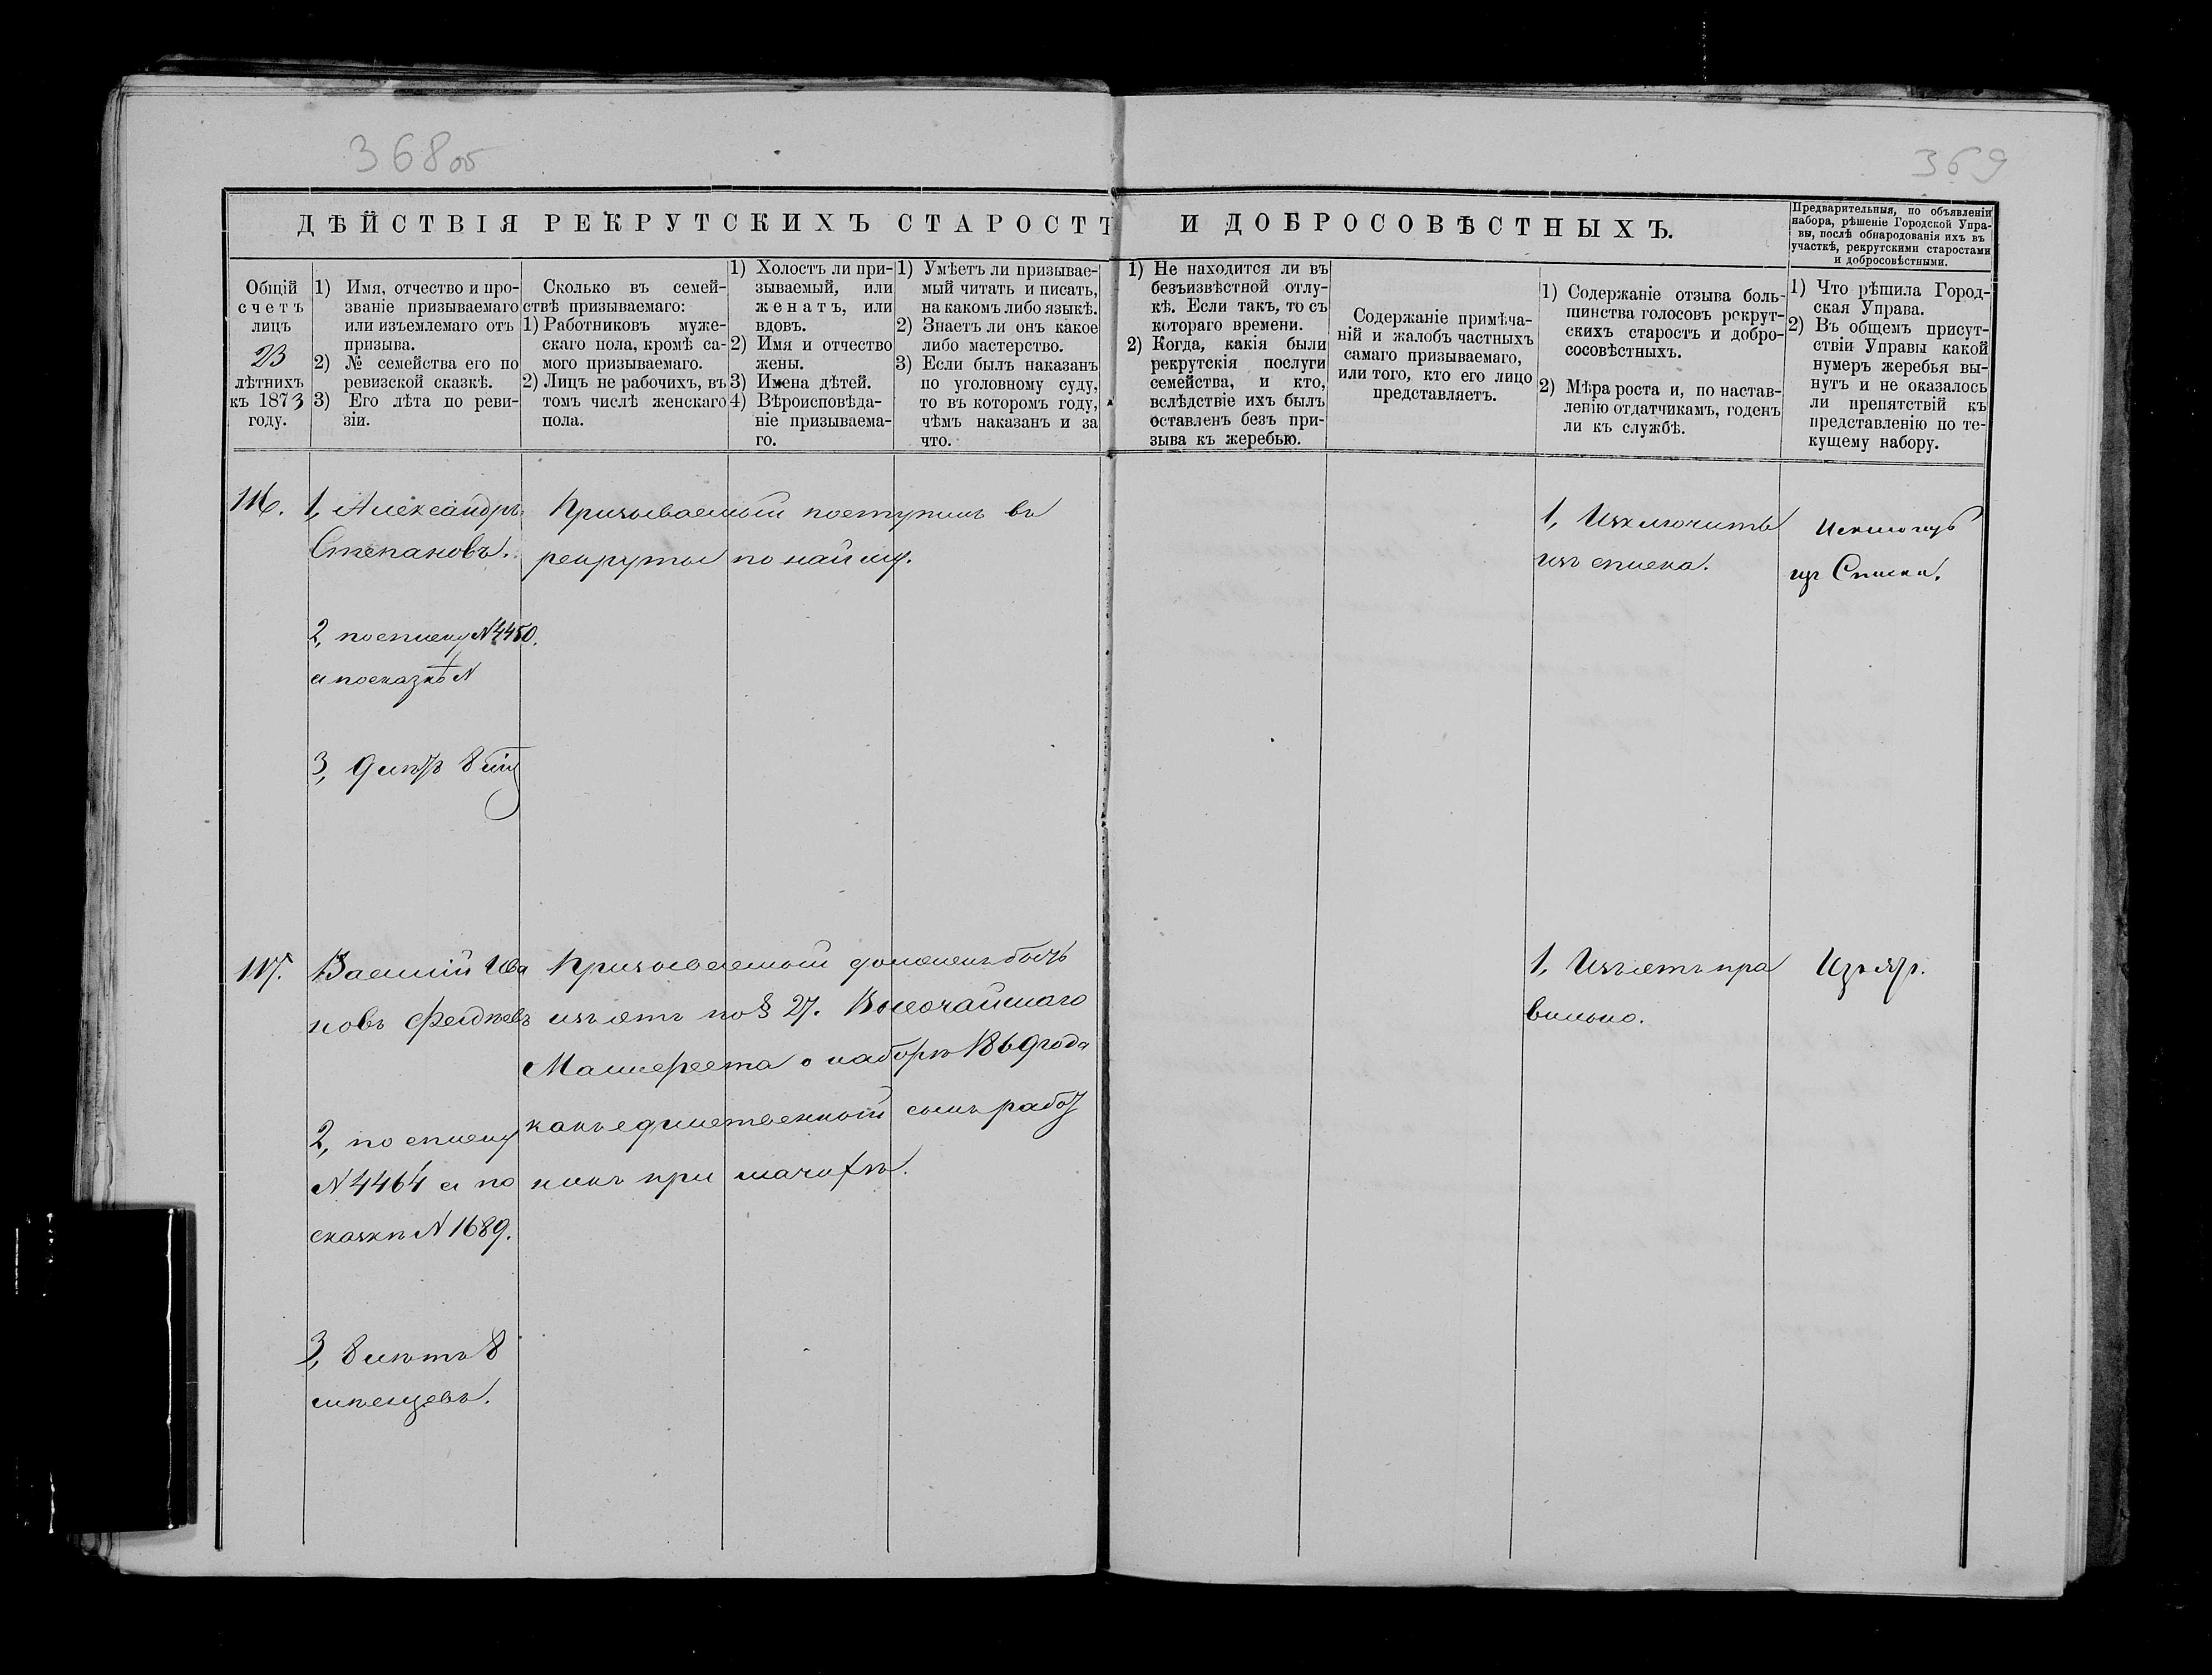 368об
369
ДѢЙСТВІЯ РЕКРУТСКИХЪ СТАРОСТЪ И ДОБРОСОВѢСТНЫХЪ.
Предварительныя, по объявленіи
набора, рѣшеніе Городской Упра-
вы, послѣ обнародованія ихъ въ
участкѣ, рекрутскими старостами
и добросовѣстными.
Общій
счетъ
лицъ
23
лѣтнихъ
къ 1873
году.
1) Имя, отчество и про-
званіе призываемаго
или изъемлемаго отъ
призыва.
2) № семейства его по
ревизской сказкѣ.
3) Его лѣта по реви-
зіи.
Сколько въ семей-
ствѣ призываемаго:
1) Работниковъ муже-
скаго пола, кромѣ са-
мого призываемаго.
2) Лицъ не рабочихъ, въ
томъ числѣ женскаго
пола.
1) Холостъ ли при-
зываемый, или
женатъ, или
вдовъ.
2) Имя и отчество
жены.
3) Имена дѣтей.
4) Вѣроисповѣда-
ніе призываема-
го.
1) Умѣетъ ли призывае-
мый читать и писать,
на какомъ либо языкѣ.
2) Знаетъ ли онъ какое
либо мастерство.
3) Если былъ наказанъ
по уголовному суду,
то въ которомъ году,
чѣмъ наказанъ и за
что.
1) Не находится ли въ
безъизвѣстной отлу-
кѣ. Если такъ, то съ
котораго времени.
2) Когда, какія были
рекрутскія послуги
семейства, и кто,
вслѣдствіе ихъ былъ
оставленъ безъ при-
зыва къ жеребью.
Содержаніе примѣча-
ній и жалобъ частныхъ
самаго призываемаго,
или того, кто его лицо
представляетъ.
1) Содержаніе отзыва боль-
шинства голосовъ рекрут-
скихъ старостъ и добро-
сосовѣстныхъ.
2) Мѣра роста и, по настав-
ленію отдатчикамъ, годенъ
ли къ службѣ.
1) Что рѣшила Город-
ская Управа.
2) Въ общемъ присут-
ствіи Управы какой
нумеръ жеребья вы-
нутъ и не оказалось
ли препятствій къ
представленію по те-
кущему набору.
116.
1, Александръ
Степановъ.
2, по списку N 4450.
а по сказкѣ N
3, 9 лѣтъ 8 мѣ
Призываемый поступилъ въ
рекруты по найму.
1, Исключить
изъ списка.
Исключ
изъ Списка.
117.
Василій Ива
новъ Федѣевъ
2, по списку
N 4464 а по
сказкѣ N 1689.
3, 8 лѣтъ 8
мѣсяцевъ.
Призываемый долженъ быть
изъятъ по § 27. Высочайшаго
Манифеста о наборѣ 1869 года
какъ единственный сынъ работ
никъ при мачихѣ.
1, Изъятъ пра
вильно.
Изъят.